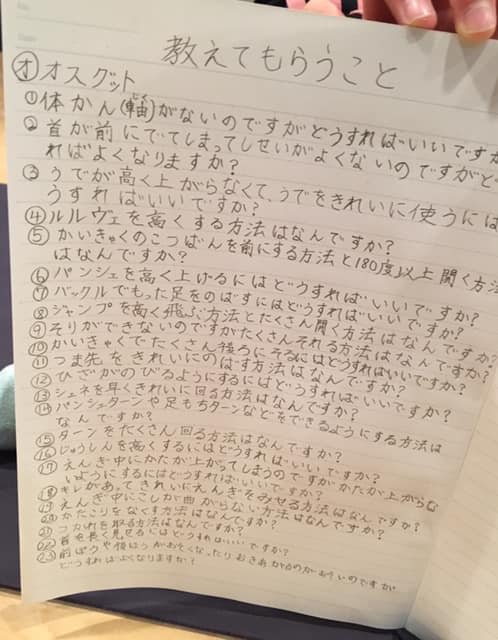 教えてもらうこと
オ オスグット
① 体かん(軸じく)がないのですがどうすればいいですか
② 首が前にでてしまってしせいがよくないのですがど
ればよくなりますか?
③ うでが高く上がらなくて、うでをきれいに使うには
うすればいいですか?
④ ルルヴェを高くする方法はなんですか?
⑤ かいきゃくのこつばんを前にする方法と180度以上開く方法
はなんですか?
⑥ パンシェを高く上げるにはどうすればいいですか?
⑦ バックルでもった足をのばすにはどうすればいいですか?
⑧ ジャンプを高く飛ぶ方法とたくさん開く方法はなんですか?
⑨ そりができないのですがたくさんそれる方法はなんですか?
⑩ かいきゃくでたくさん後ろにそるにはどうすればいいですか?
⑪ つま先をきれいにのばす方法はなんですか?
⑫ ひざがのびるようにするにはどうすればいいですか?
⑬ シェネを早くきれいに回る方法はなんですか?
⑭ パンシェターンや足もちターンなどをできるようにする方法は
なんですか?
⑮ ターンをたくさん回る方法はなんですか?
⑯ じゅうしんを高くするにはどうすればいいですか?
⑰ えんぎ中にかたが上がってしまうのですがかたが上がらな
いようにするにはどうすればいいですか?
⑱ キレがあってきれいにえんぎをみせる方法はなんですか?
⑲ えんぎ中にこしが曲がらない方法はなんですか?
⑳ かたこりをなくす方法はなんですか?
㉑ つかれを取る方法はなんですか?
㉒ 首を長く見せるにはどうすればいいですか?
㉓ 前ばうや後ほうがおそくなったりおきあがるのがおそいのですが
どうすればよくなりますか?